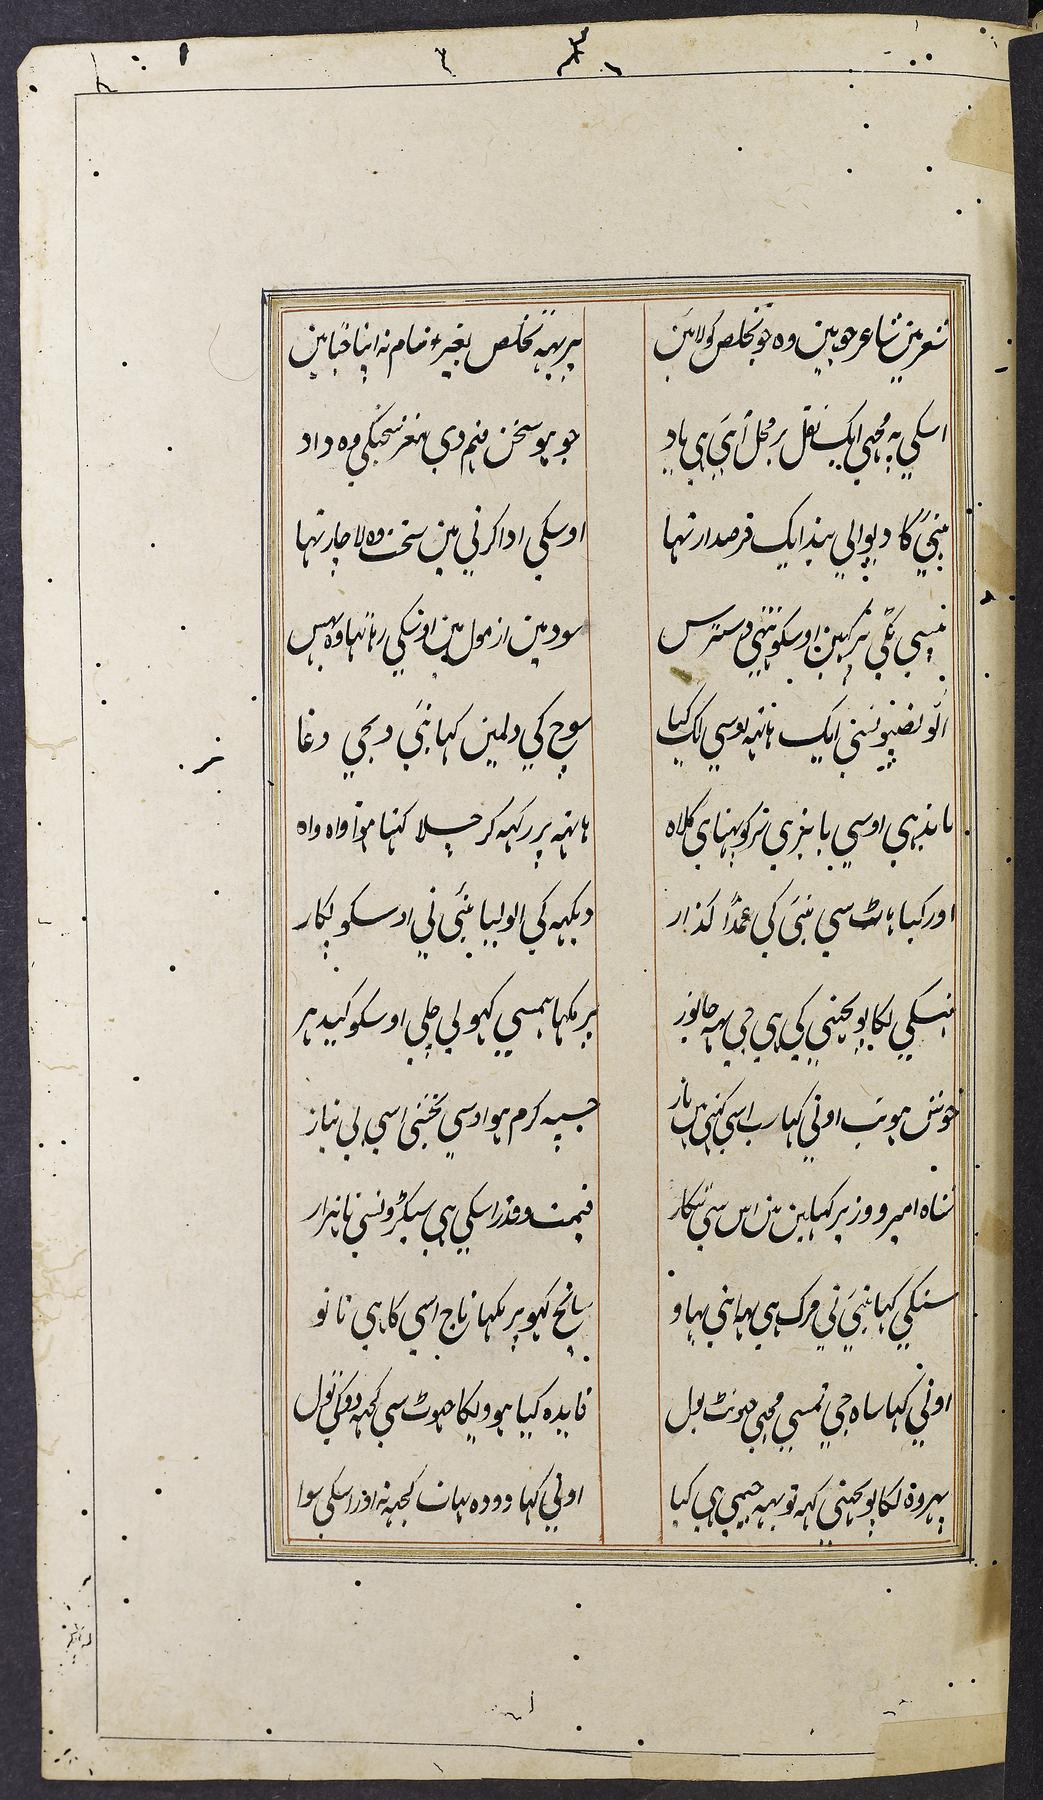 شعر مین شاعر جو ہین وہ جو تخلص کو لائین
پر یہہ تخلص بغیر نام نہ اپنا جتاین
اسکی پہ مجھی ایک نقل بر محل آئی ہی یاد
جو ہو سخن فہم دی مغز سخنکی وہ داد
بنئی کا دیوالی بند ایک قرصدار تہا
اوسکی ادا کرنی مین سخت وہ لاچار تہا
پیسی ٹکی پر کہین اوسکو نتہی دسترس
سود مین از مول مین اوسکی رہا تہا وہ پہس
الو نصیبونسی ایک ہاتہہ اوسی لک کیا
سوچ کی دلمین کہا بنئی کو دیجی دغا
باندہی اوسی بابزہی سر کو پہنای کلاہ
ہاتہہ پر رکہہ کر چلا کہتا ہوا واہ واہ
اور کیا ہاٹ سی بنئی کی عمداً گذار
دیکہہ کی الو لیا بنئی نی اوسکو پکار
ہنسکی لکا پوچہنی کی ہی جی یہہ جانور
پر مکہا ہمسی کہو لی چلی اوسکو کیدہر
خوش ہو تب اونی کہا رب اسی کہتی ہین باز
جسپہ کرم ہو اوسی بخشی اسی بی نیاز
شاہ امیر و وزیر کہاین ہین اس سی شکار
قیمت و قدر اسکی ہی سیکڑونسی تا ہزار
سنکی کہا بنئی نی مرک ہی یہہ اپنی بہاو
پانچ کہو پر مکہا تاج اسی کا ہی نانو
اونی کہا ساہ جی تمسی مجھی جہونٹ بول
فایدہ کیا ہوویکا جہوٹ سی کچہہ دوکی تول
پہر وہ لکا پوچہنی کہہ تو یہہ جیمی ہی کیا
اونی کہا دودہ بہات کچہہ نہ اور اسکی سوا